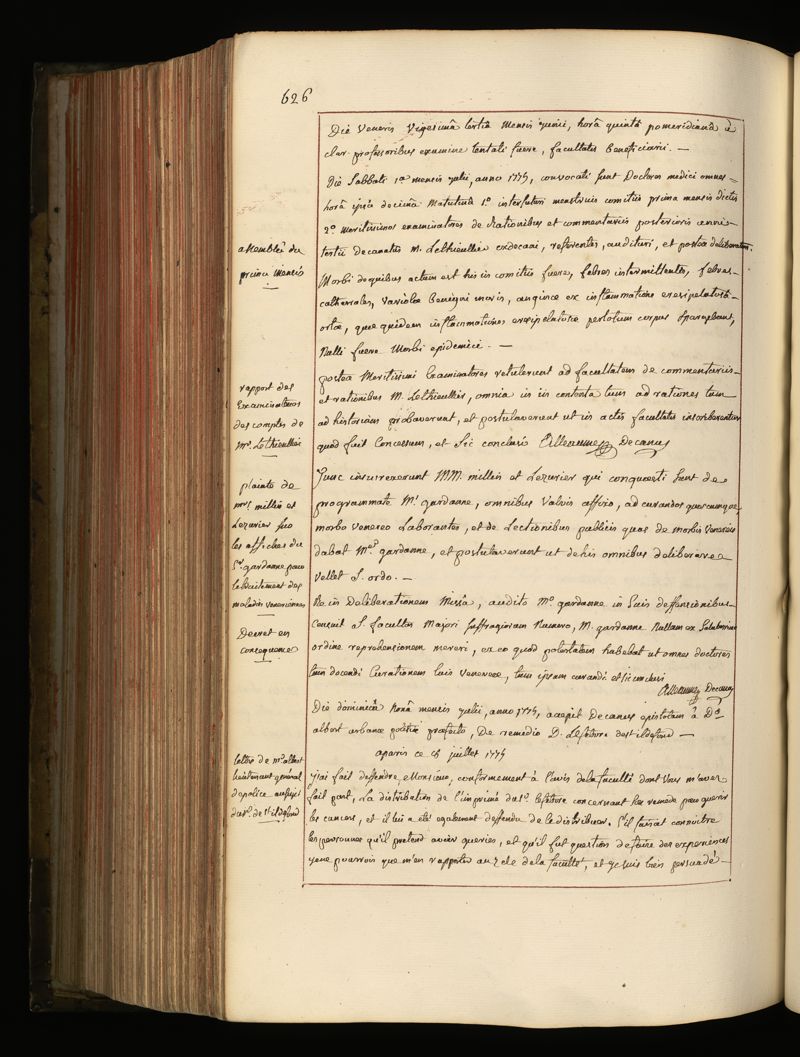 626
Die Veneris Vigesimâ tertiâ Mensis junii, horâ quintâ pomeridianâ à
clar. professoribus examine tentati fuere, facultatis beneficiarii. —
Die Sabbati 1a mensis julii, anno 1775, convocati sunt Doctores medici omnes
horâ ipsâ decimâ Matutinâ 1.o interfuturi menstruis comitiis prima mensis dictis
2.o Meritissimos examinatores de Rationibus et commentariis posterioris anni
tertii decanatus M. Lethieullier exdecani, referentes, audituri, et postea deliberaturi.
assemblée du
prima Mensis
Morbi de quibus actum est his in comitiis fuere, febres intermittentes, febres
catharrales, Variolæ benigni moris, anginæ ex inflammatione eresipelatosâ
ortæ, quæ quidem inflammationes eresipelatosæ per totum corpus
Nulli fuere Morbi epidemici. —
rapport des
Examinateurs
des comptes de
Mr. Lethieullier
postea Meritissimi Examinatores retulerunt ad facultatem de commentariis
et rationibus M. Lethieullier, omnia in iis contenta tum ad rationes tum
ad historiam probaverunt, et postulaverunt ut in actis facultatis inscriberentur
quod fuit Concessum, et sic conclusi Alleaume Decanus
plainte de
Mrs. millin et
Lezurier sur
les affiches du
Sr. gardanne pour
le traitement des
maladies venériennes
Tunc insurrexerunt MM. millin et Lezurier qui conquesti sunt de
programmate Mi gardanne, omnibus Valvis affixo, ad curandos quoscumque
morbo venereo Laborantes, et de Lectionibus publicis quas de morbis Venereis
dabat Mus gardanne, et postulaverunt ut de his omnibus deliberare
vellet S. ordo. —
Decret en
consequence
Re in Deliberationem Missâ, audito Mo. gardanne in Suis deffensionibus
Censuit S. facultas Majori suffragiorum Numero, M. gardanne Nullam ex Saluberrimo
ordine reprehensionem mereri, ex eo quod potestatem habebat ut omnes doctores
tum docendi Curationem luis Venereæ, tum ipsam curandi et sic conclusi
Alleaume Decanus
Die dominicâ Nonâ mensis julii, anno 1775, accepit Decanus epistolam à Do.
albert urbanæ politiæ præfecto, De remedio D. Lefebvre de st ildefond —
aparis ce 8 juillet 1775
lettre de Mr. albert
lieutenant général
de police au sujet
du Sr. de St ildefond
J'ai fait deffendre, Monsieur, conformement à l'avis de la faculté dont vous m'avez
fait part, La distribution de l'imprimé du Sr. lefebvre concernant son remede pour guerir
les cancers, et il lui a eté egalement deffendu de le distribuer. S'il faisoit connoitre
les personnes qu'il pretend avoir gueries, et qu'il fut question de faire des experiences
je ne pourrois que m'en rapporter au zele de la faculté, et je suis bien persuadé —